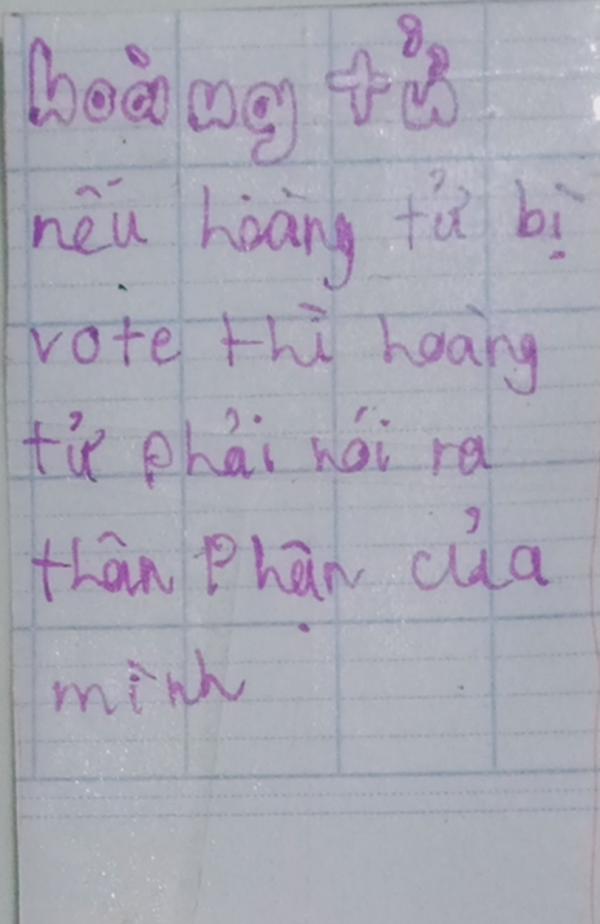 hoàng tử
nếu hoàng tử bị
vote thì hoàng
tử phải nói ra
thân phận của
mình